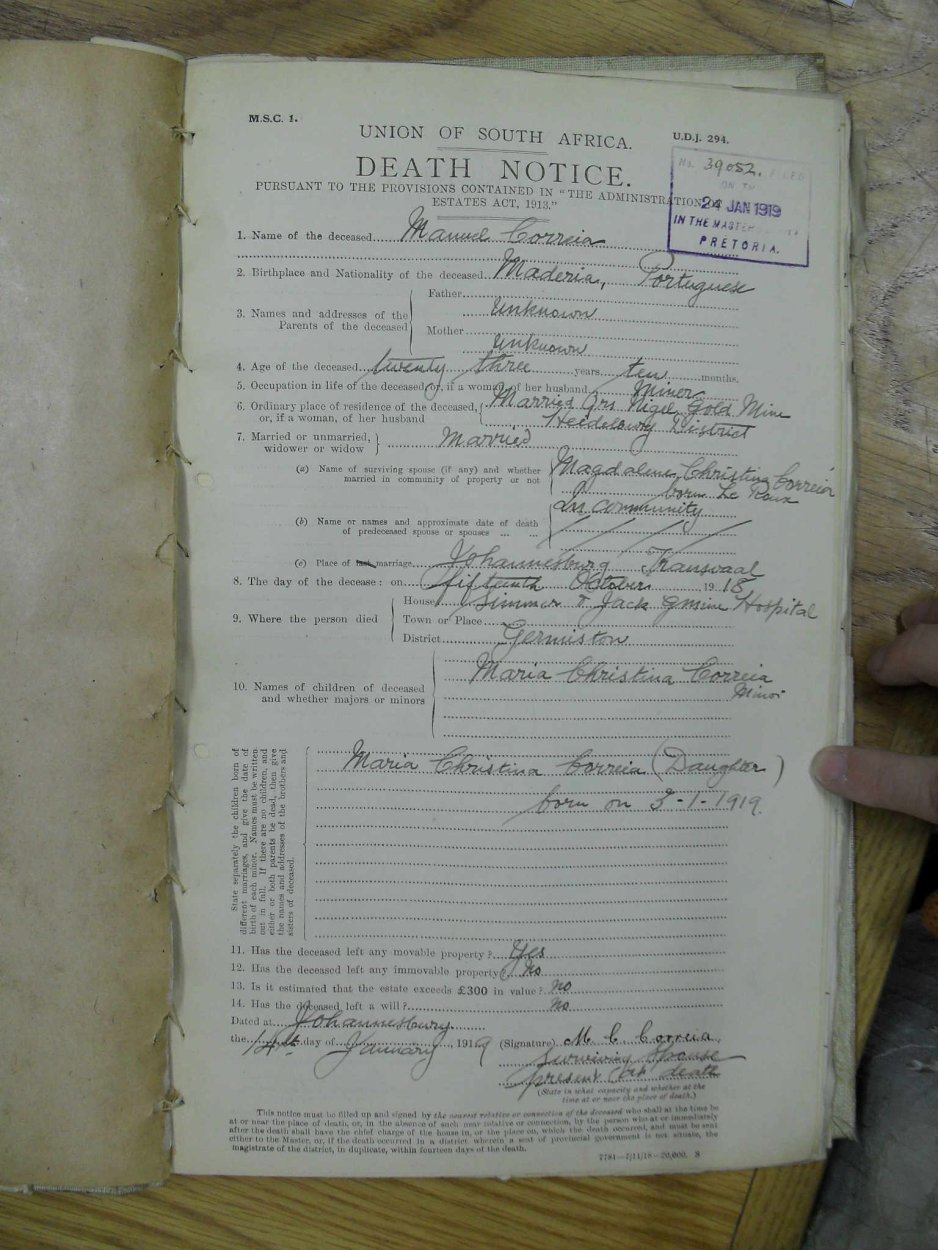 M.S.C. 1.
U.D.J. 294.
UNION OF SOUTH AFRICA.
DEATH NOTICE.
No. 39052. FILED
ON THE
24 JAN 1919
IN THE MASTER
PRETORIA.
PURSUANT TO THE PROVISIONS CONTAINED IN "THE ADMINISTRATION OF
ESTATES ACT, 1913."
1. Name of the deceased Manuel Correia
2. Birthplace and Nationality of the deceased Maderia, Portuguese
3. Names and addresses of the Parents of the deceased
Father Unknown
Mother Unknown
4. Age of the deceased twenty three years ten months.
5. Occupation in life of the deceased, or, if a woman, of her husband Miner
6. Ordinary place of residence of the deceased, or, if a woman, of her husband
Married Qrs Nigel Gold Mine
Heidelburg District
7. Married or unmarried, widower or widow
Married
(a) Name of surviving spouse (if any) and whether married in community of property or not
Magdalene Christina Correia
born Le Roux
In community
(b) Name or names and approximate date of death of predeceased spouse or spouses ... ...
(c) Place of last marriage Johannesburg Transvaal
8. The day of the decease: on fifteenth October 1918
9. Where the person died
House Simmer & Jack G Mine Hospital
Town or Place
District Germiston
10. Names of children of deceased and whether majors or minors
Maria Christina Correia
Minor
State separately the children born of
different marriages, and give the date of
birth of each minor. Names must be written
out in full. If there are no children, and
either or both parents be dead, then give
the names and addresses of the brothers and
sisters of deceased.
Maria Christina Correia (Daughter)
born on 3-1-1919.
11. Has the deceased left any movable property? Yes
12. Has the deceased left any immovable property? No
13. Is it estimated that the estate exceeds £300 in value? No
14. Has the deceased left a will? No
Dated at Johannesburg
the 14th day of January, 1919
(Signature) M. C. Correia
Surviving Spouse
present at death
(State in what capacity and whether at the
time at or near the place of death.)
This notice must be filled up and signed by the nearest relative or connection of the deceased who shall at the time be
at or near the place of death, or, in the absence of such near relative or connection, by the person who at or immediately
after the death shall have the chief charge of the house in, or the place on, which the death occurred, and must be sent
either to the Master, or, if the death occurred in a district wherein a seat of provincial government is not situate, the
magistrate of the district, in duplicate, within fourteen days of the death.
7781—7/11/18—20,000. S